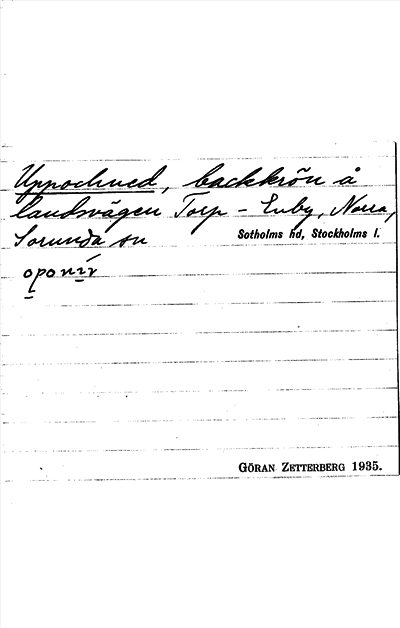 Uppochned, backkrön å
landsvägen Torp - Enby, Norra,
Sorunda sn Sotholms hd, Stockholms l.
GÖRAN ZETTERBERG 1935.